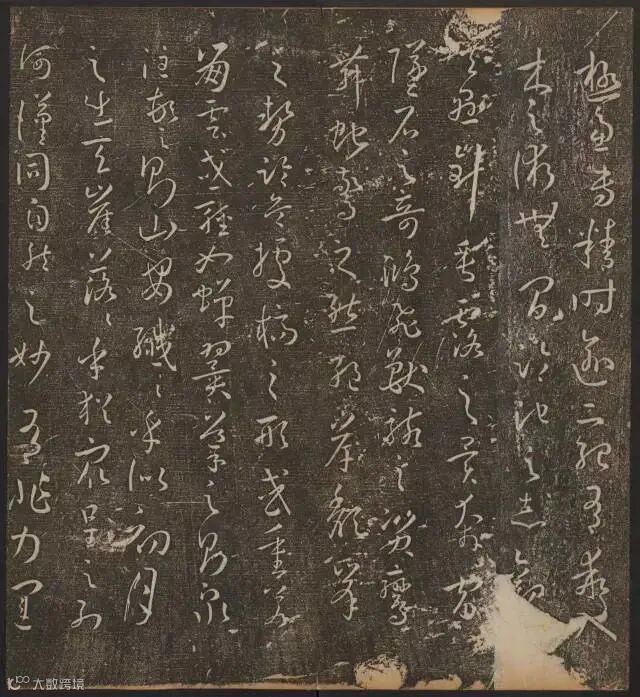 極慮專精時逾二紀有乖入
木之術無間臨池之志觀
夫懸針垂露之異奔雷
墜石之奇鴻飛獸駭之資鸞
舞蛇驚之態絕岸頹峯
之勢臨危據槁之形或重若
崩雲或輕如蟬翼導之則泉
注頓之則山安纖〻乎似初月
之出天崖落〻乎猶衆星之列
河漢同自然之妙有非力運
大数跨境